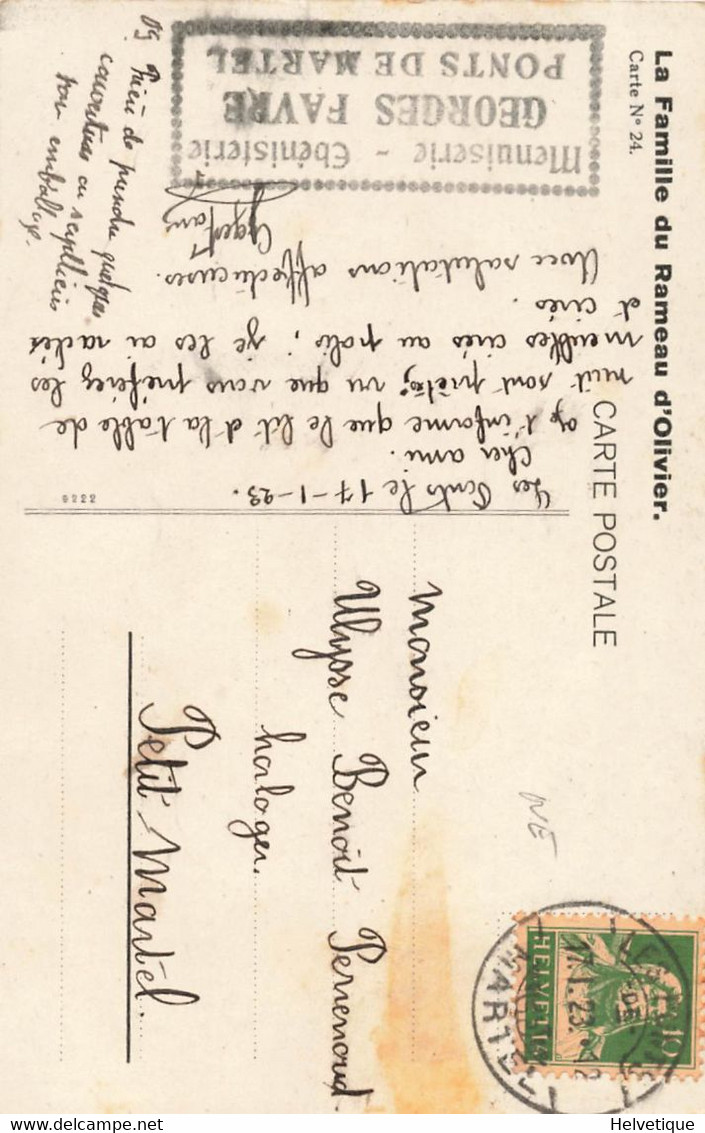 La Famille du Rameau d'Olivier.
Carte N° 24.
CARTE POSTALE
Menuiserie - Ébénisterie
GEORGES FAVRE
PONTS DE MARTEL
Les Ponts le 17-1-23.
Cher ami.
t'informe que le lit et la table de
nuit sont prêts, vu que vous préfériez les
meubles cirés au polis, je les ai
et cirés.
Avec salutations affectueuses.
Prière de prendre quelques
couvertures ou
pour emballage.
9222
Monsieur
Ulysse Benoit Perrenoud.
horloger.
Petit Martel.
NE
HELVETIA
10
LES PONTS
DE
17.I.23.
MARTEL
Helvetique